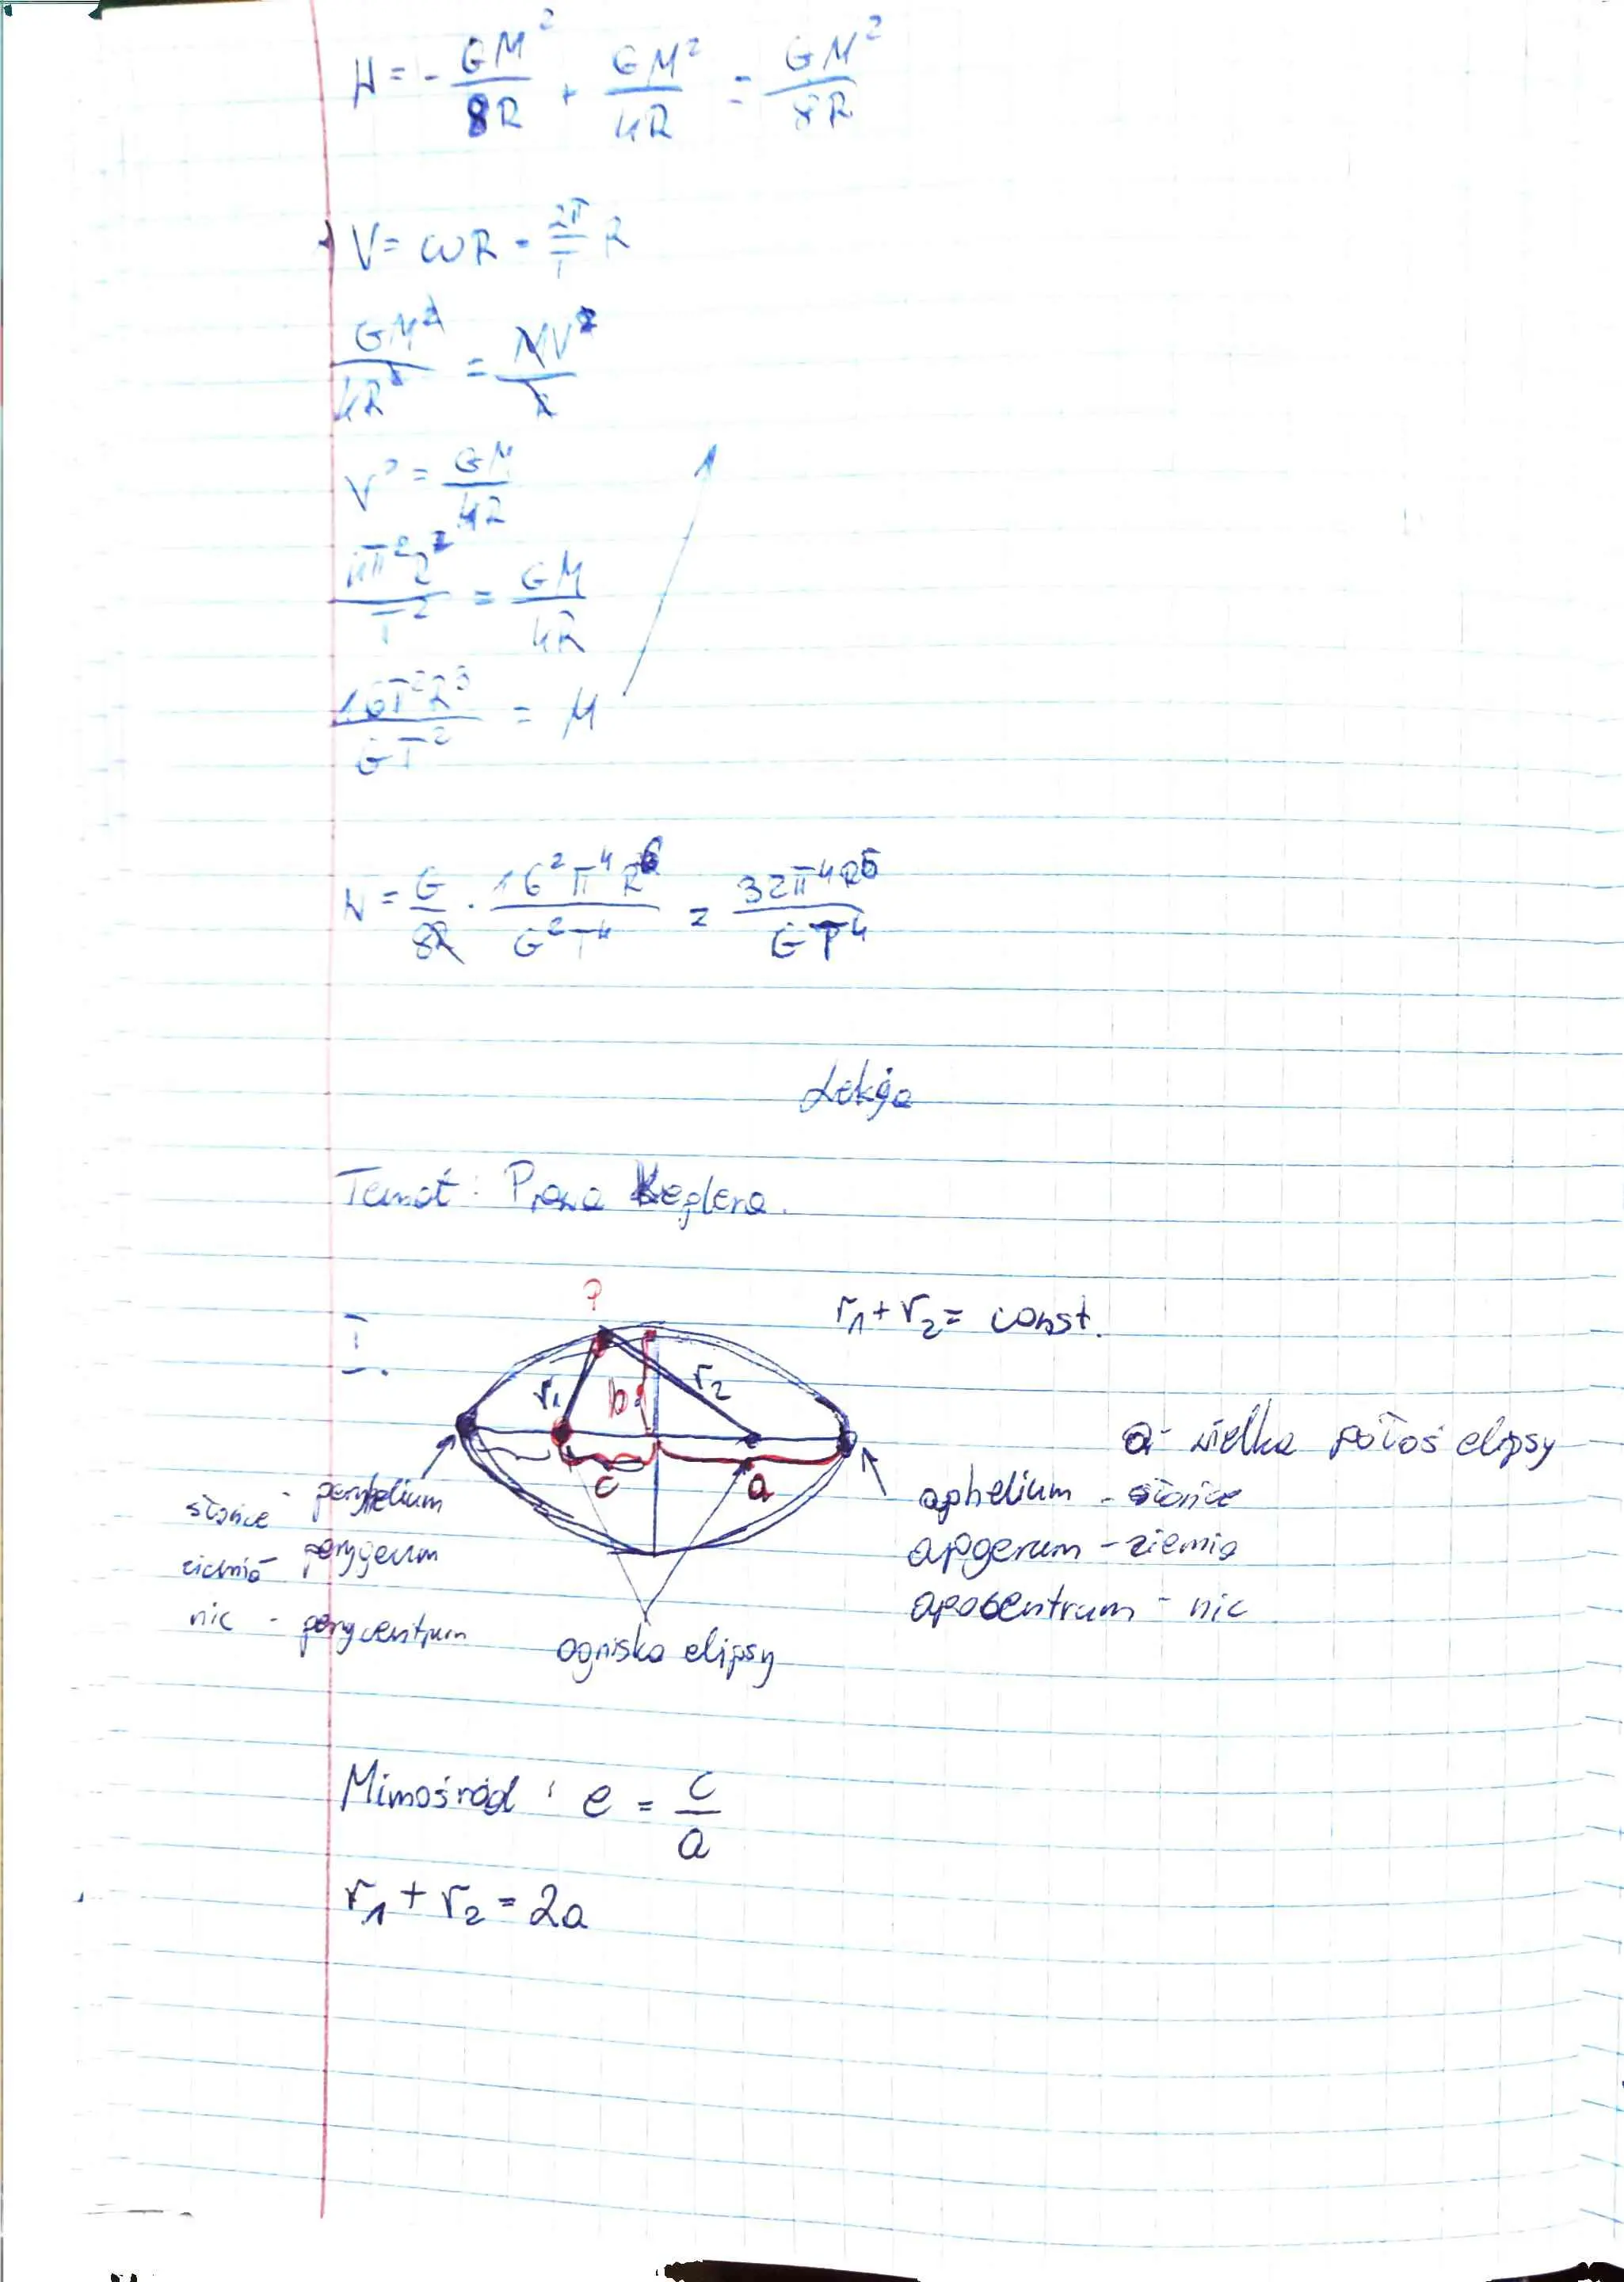 W = - GM²/8R + GM²/4R = GM²/8R
V = ωR = 2π/T R
GM²/4R² = MV²/R
V² = GM/4R
4π²R²/T² = GM/4R
16π²R³/GT² = M
W = G/8R · 16²π⁴R⁶/G²T⁴ = 32π⁴R⁵/GT⁴
Lekcja
Temat: Prawa Keplera.
I.
?
r₁+r₂= const.
r₁
b
r₂
c
a
a- wielka półoś elipsy
słońce - peryhelium
ziemia - perygeum
nic - perycentrum
aphelium - słońce
apogeum - ziemia
apocentrum - nic
ogniska elipsy
Mimośród : e = c/a
r₁ + r₂ = 2a